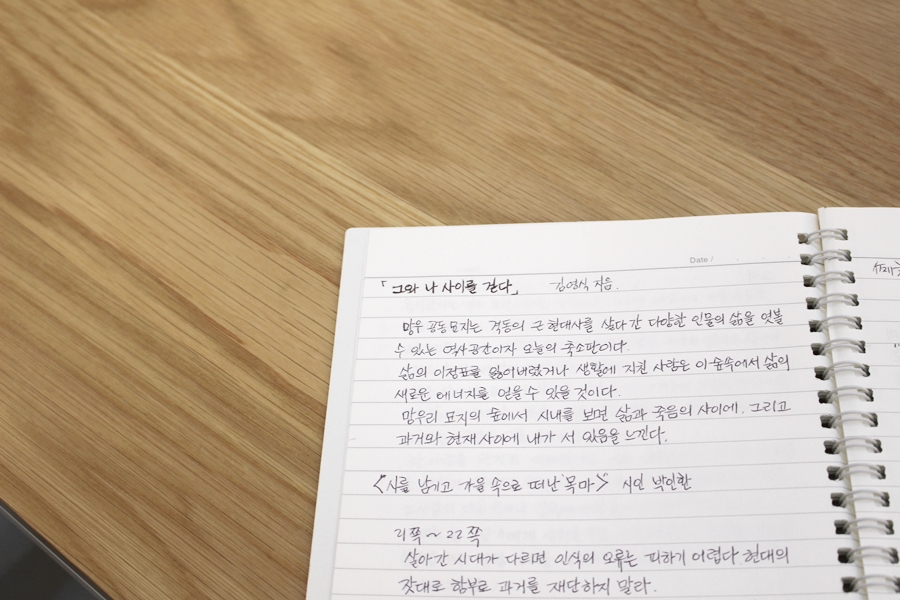 Date /
「그와 나 사이를 걷다」 김영식 지음.
망우 공동묘지는 격동의 근현대사를 살다간 다양한 인물의 삶을 엿볼
수 있는 역사공간이자 오늘의 축소판이다.
삶의 이정표를 잃어버렸거나 생활에 지친 사람은 이 숲속에서 삶의
새로운 에너지를 얻을 수 있을 것이다.
망우리 묘지의 숲에서 시내를 보면 삶과 죽음의 사이에, 그리고
과거와 현재 사이에 내가 서 있음을 느낀다.
<시를 남기고 가을 속으로 떠난 '목마'> 시인 박인환
21쪽 ~ 22쪽
살아간 시대가 다르면 인식의 오류는 피하기 어렵다 현대의
잣대로 함부로 과거를 재단하지 말라.